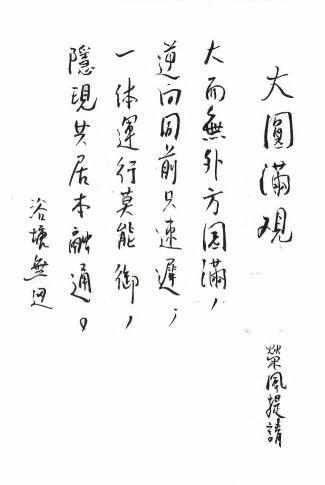 大圓滿观
榮風提請
大而無外方圆滿，
逆向同前只速遲；
一体運行莫能御，
隱現共居本融通。
浴塘無迅